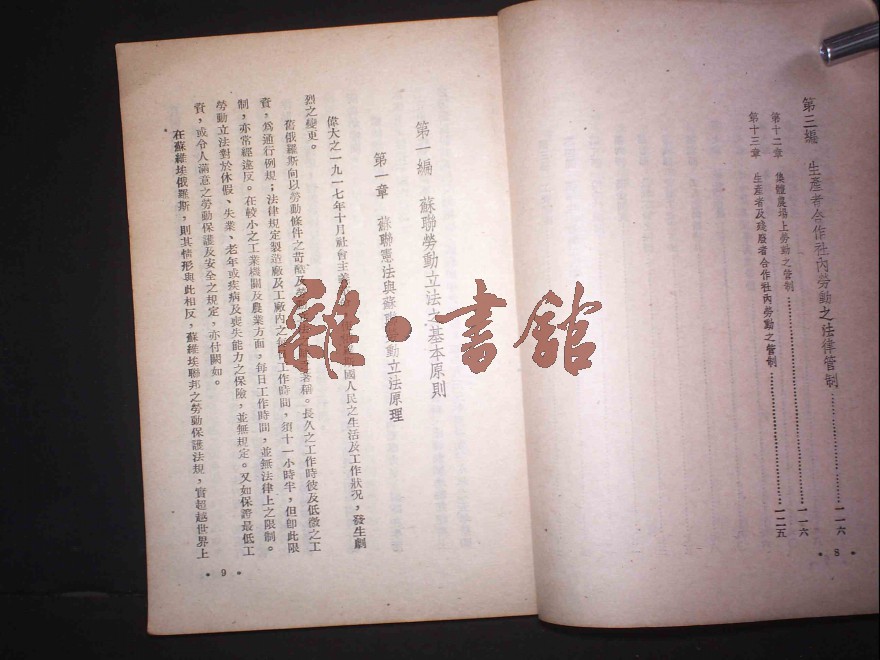 第三編　生產者合作社內勞動之法律管制……………一一六
第十二章　集體農場上勞動之管制……………一一六
第十三章　生產者及殘廢者合作社內勞動之管制……………一二五
• 8 •
第一編　蘇聯勞動立法之基本原則
第一章　蘇聯憲法與蘇聯勞動立法原理
偉大之一九一七年十月社會主義 國人民之生活及工作狀況，發生劇
烈之變更。
舊俄羅斯向以勞動條件之苛酷及 著稱。長久之工作時彼及低微之工
資，為通行例規；法律規定製造廠及工廠內之 工作時間，須十一小時半，但卽此限
制，亦常經違反。在較小之工業機關及農業方面，每日工作時間，並無法律上之限制。
勞動立法對於休假、失業、老年或疾病及喪失能力之保險，並無規定。又如保證最低工
資，或令人滿意之勞動保護及安全之規定，亦付闕如。
在蘇維埃俄羅斯，則其情形與此相反，蘇維埃聯邦之勞動保護法規，實超越世界上
• 9 •
雜·書館